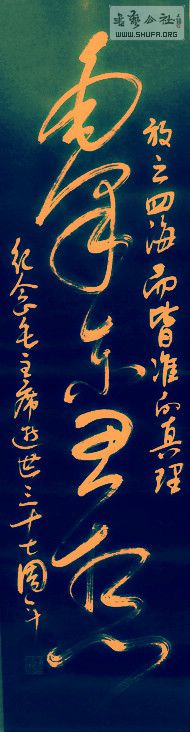 书艺公社
WWW.SHUFA.ORG
放之四海而皆准的真理
毛泽东思想
纪念毛主席逝世三十七周年